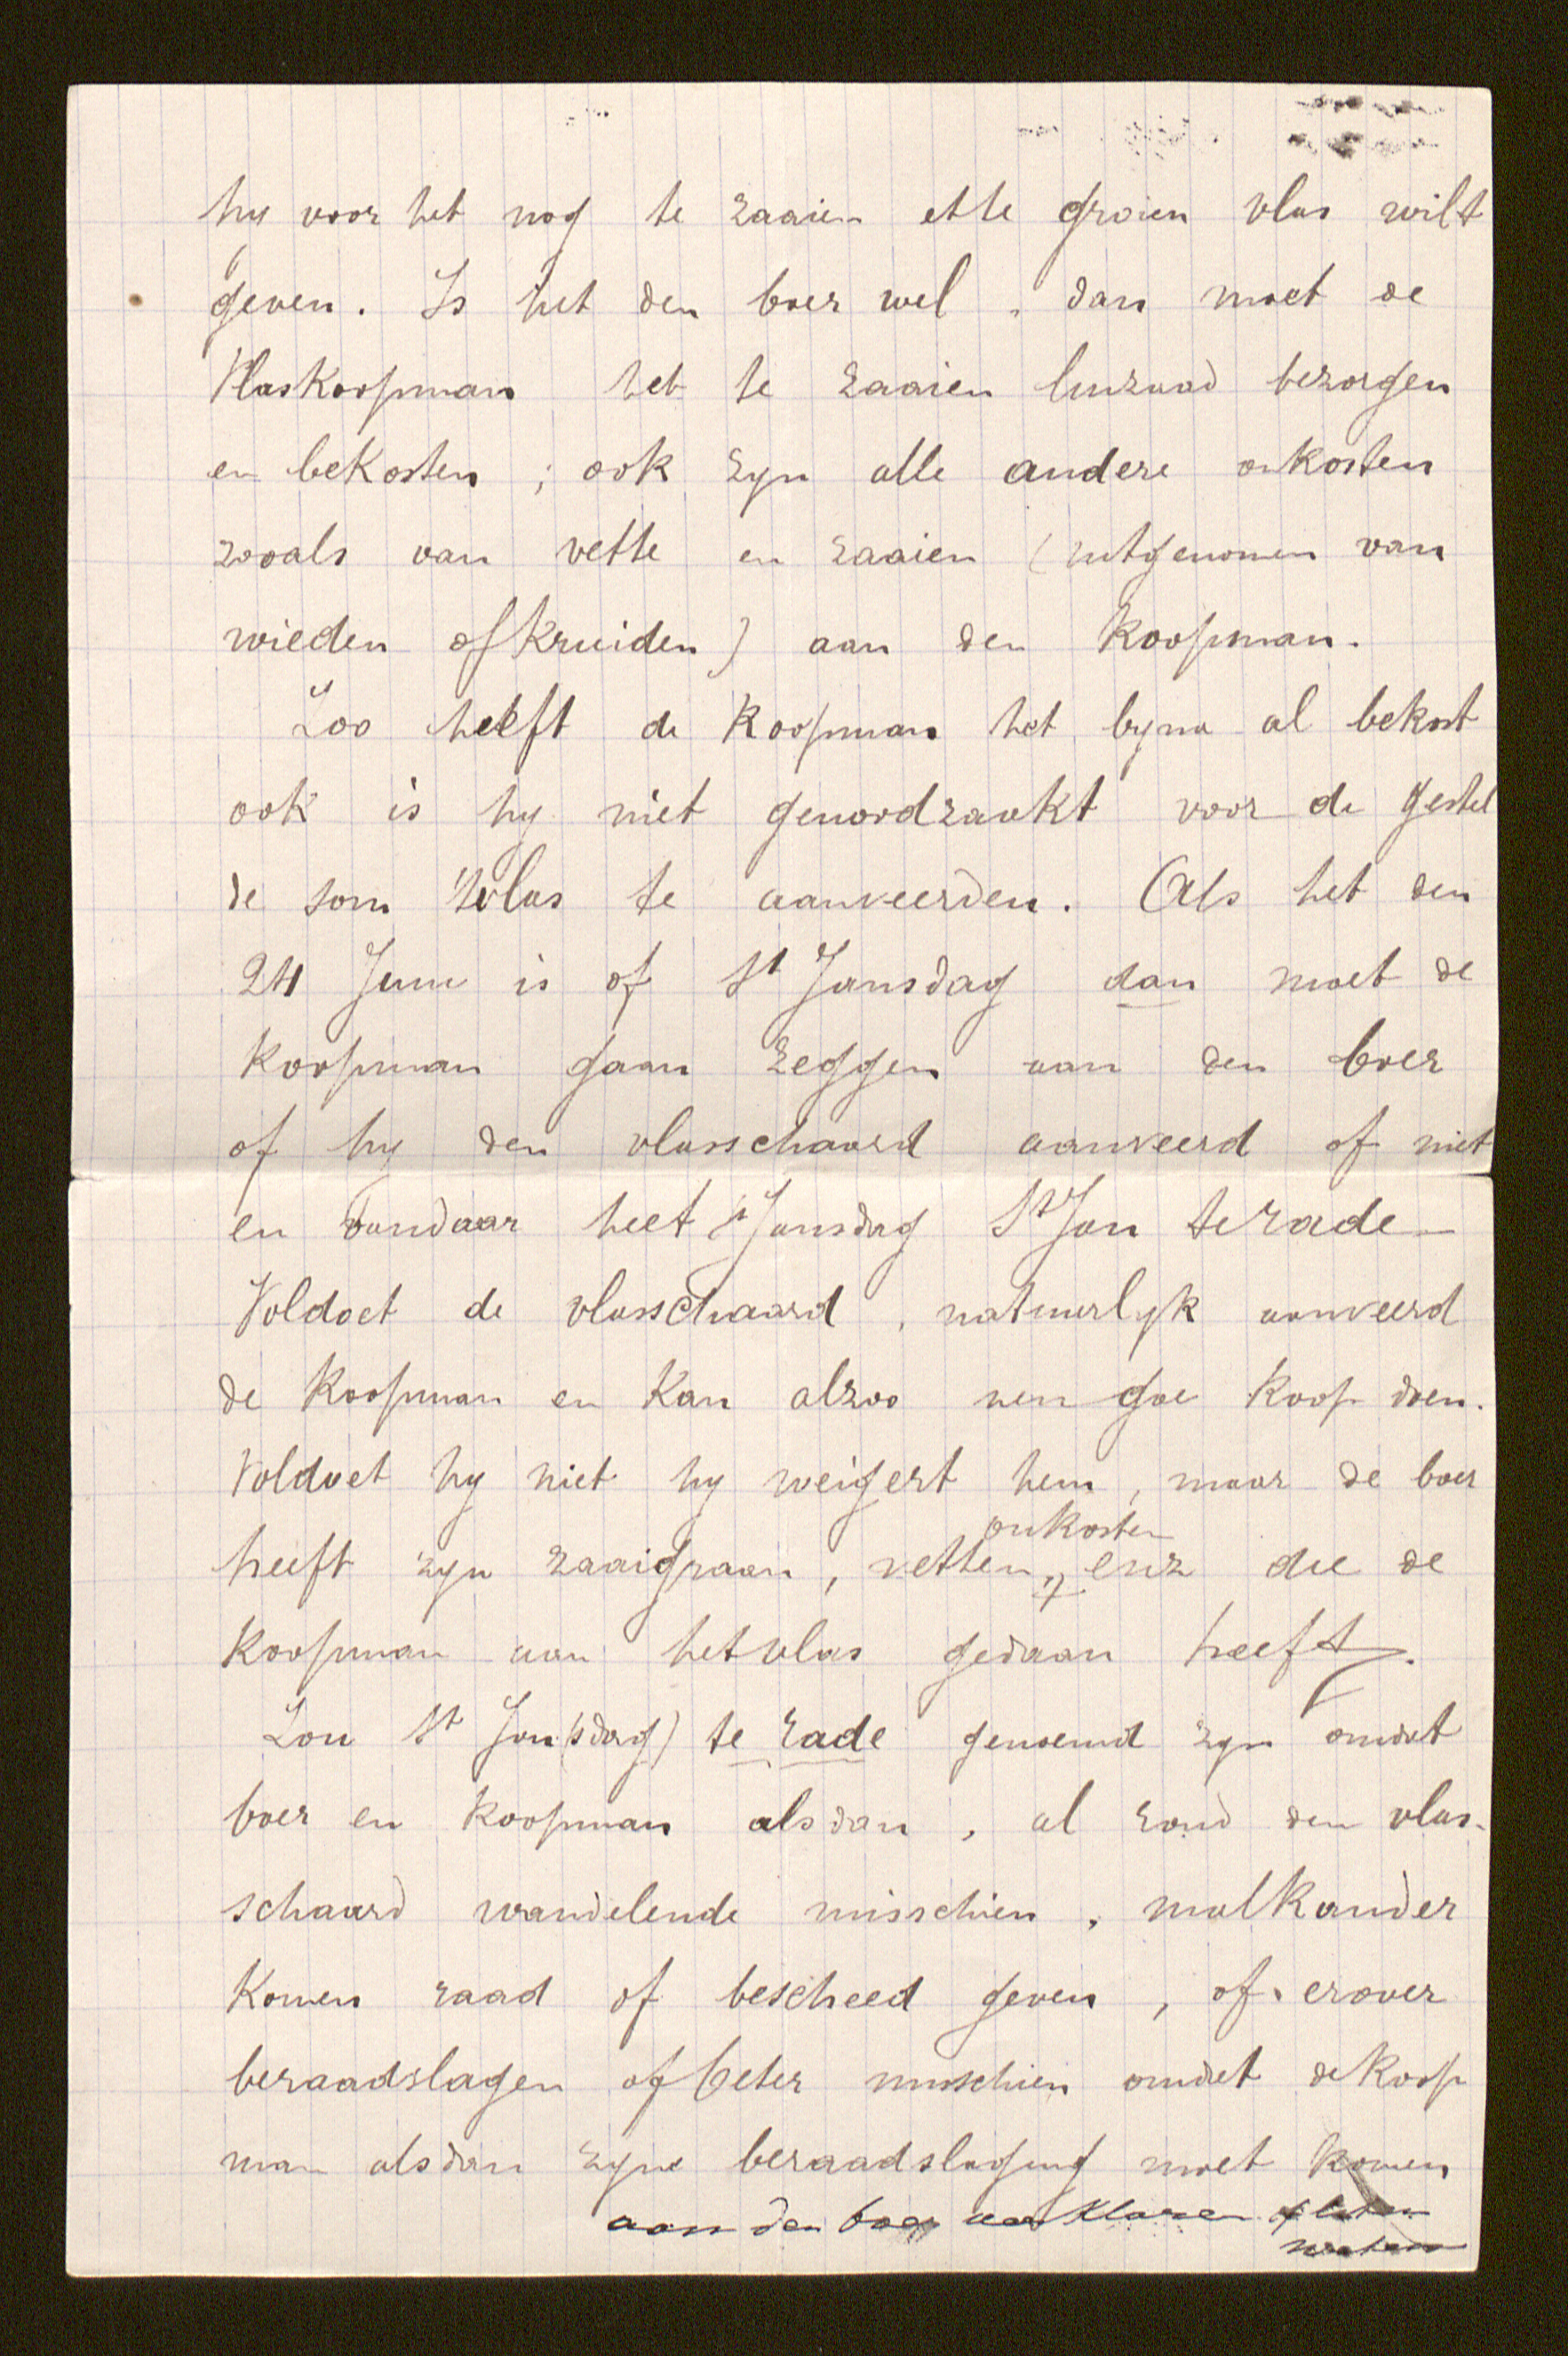 hy voor het nog te zaaien et te groien vlas wilt
geven. Is het den boer wel, dan moet de
Vlaskoopman het te zaaien linzaad bezorgen
en bekosten ; ook zyn alle andere onkosten
zooals van vette en zaaien (uitgenomen van
wieden of kruiden) aan den koopman.
Zoo heeft de koopman het byna al bekost
ook is hy niet genoodzaakt voor de gestel
de som 't vlas te aanveerden. Als het den
24 Juni is of St Jansdag dan moet de
koopman gaan zeggen aan den boer
of hy den vlasschaard aanveerd of niet
en vandaar heet St Jansdag St Jan te rade
Voldoet de vlasschaard, natuurlyk aanveerd
de koopman en kan alzoo nen goe koop doen.
Voldoet hy niet hy weigert hem, maar de boer
onkosten
heeft zyn zaaigraan, vetten, enz die de
koopman aan het vlas gedaan heeft.
Zou St Jan(sdag) te rade genoemd zyn omdat
boer en koopman alsdan, al rond den vlas-
schaard wandelende misschien, malkander
komen raad of bescheed geven, of erover
beraadslagen of beter misschien omdat de koop
man alsdan zyne beraadslaging moet komen
aan den boer verklaren of laten
weten